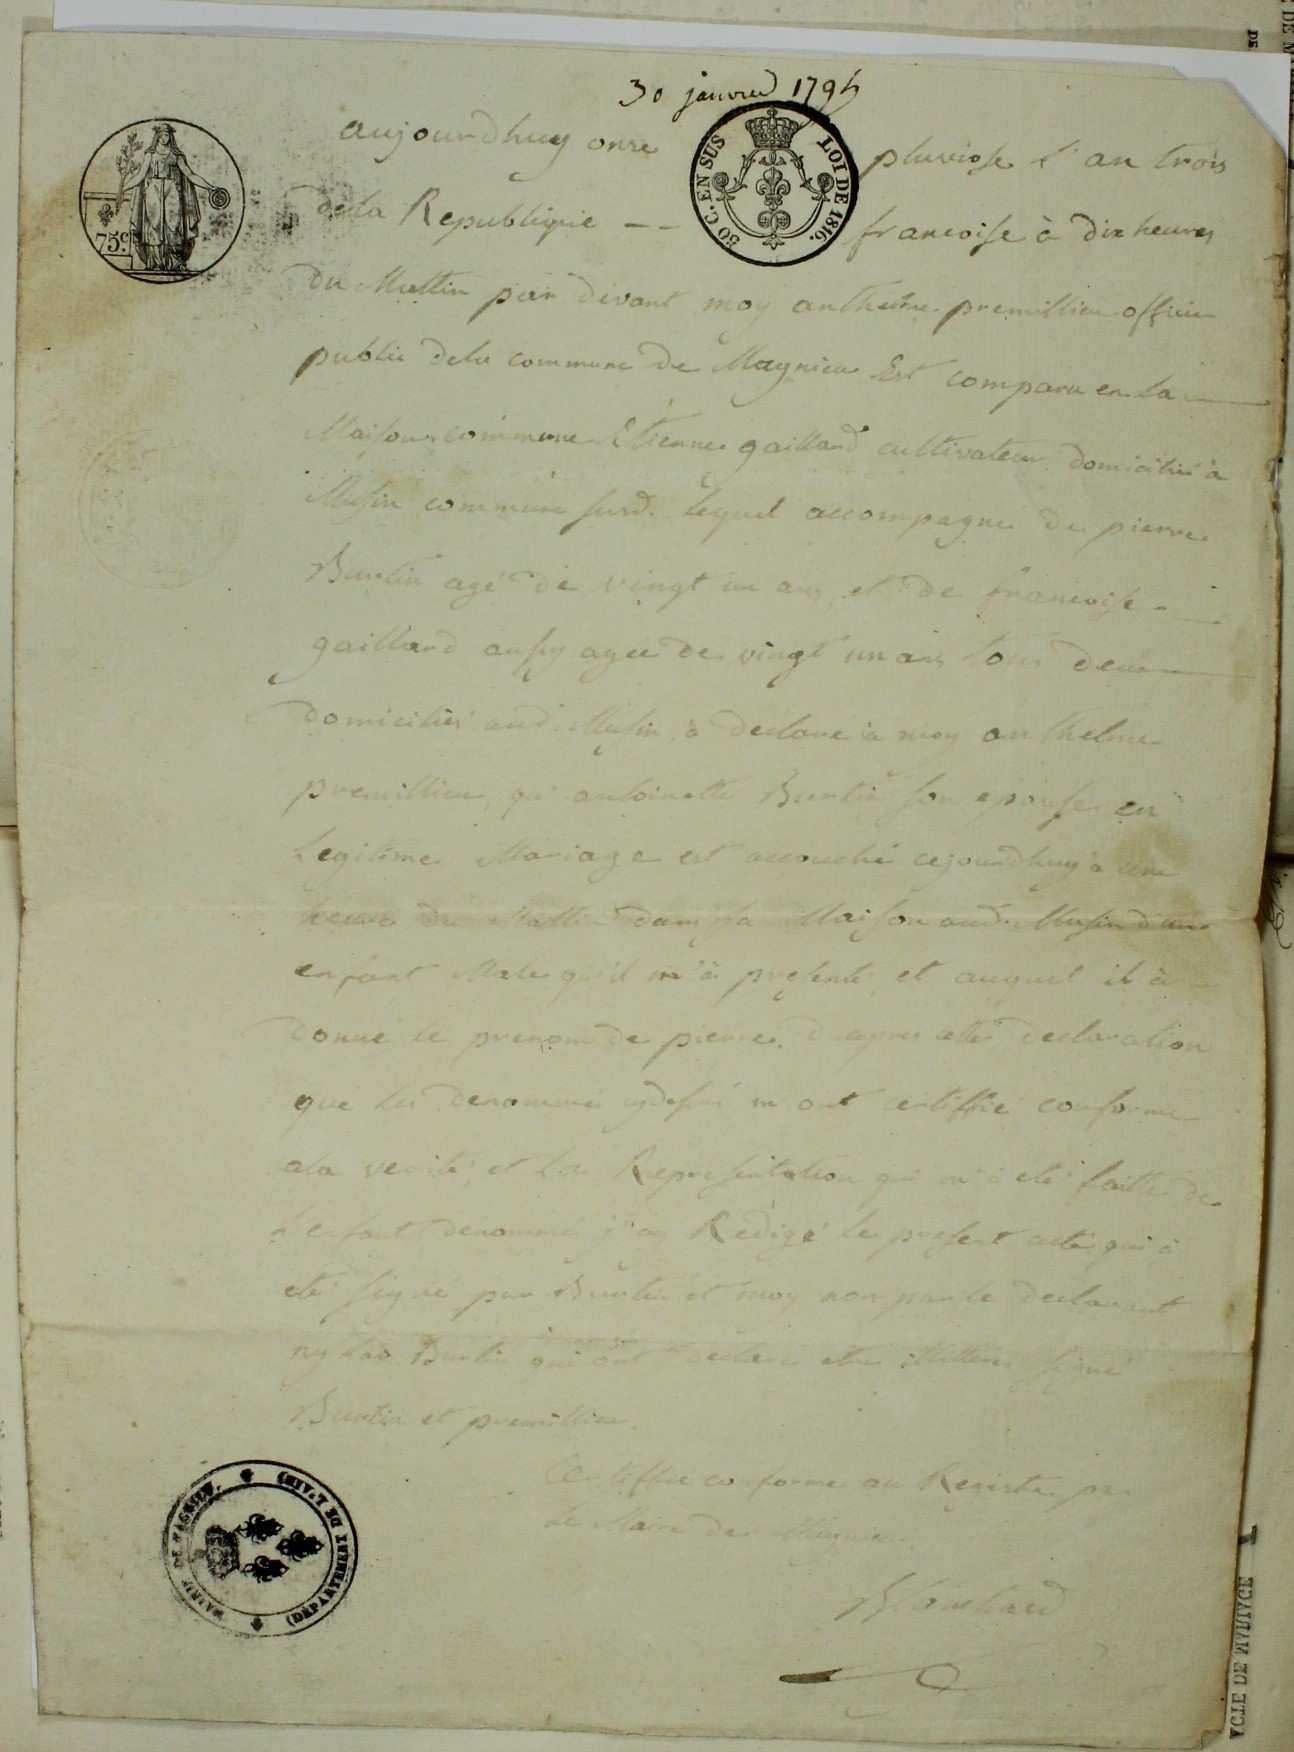 30 janvier 1795
75 c.
50 C. EN SUS
LOI DE 1816.
aujourdhuy onze pluviose l'an trois
de la Republique -- francoise à dix heures
du Mattin par devant moy anthelme premillieu officier
public dela commune de Magnieu Est comparu en la
Maison commune Etienne gaillard cultivateur domicilié à
Musin commune susd. lequel accompagné de pierre
Burtin agé de vingt un ans, et de francoise
gaillard aussy agee de vingt un ans tous deux
domiciliés aud. Musin, à declaré à moy anthelme
premillieu, qu'antoinette Burtin son epouse en
Legitime Mariage est accouché cejourdhuy à une
heure du Mattin dans sa Maison aud. Musin d'un
enfant Male qu'il m'à presenté, et auquel il à
donné le prenom de pierre. d'apres cette declaration
que les denommés cydessus m'ont certiffié conforme
ala verité, et la Representation qui m'à eté faitte de
l'enfant denommé j'ay Redigé le present acte qui à
eté signé par Burtin et moy non par le declarant
ny la Burtin qui ont declaré etre illitteré signé
Burtin et premillieu.
Certiffié conforme au Registre par
Le Maire de Magnieu
Blanchard
MAIRIE DE MAGNIEU.
(DÉPARTEMENT DE L'AIN)
ACTE DE MARIAGE